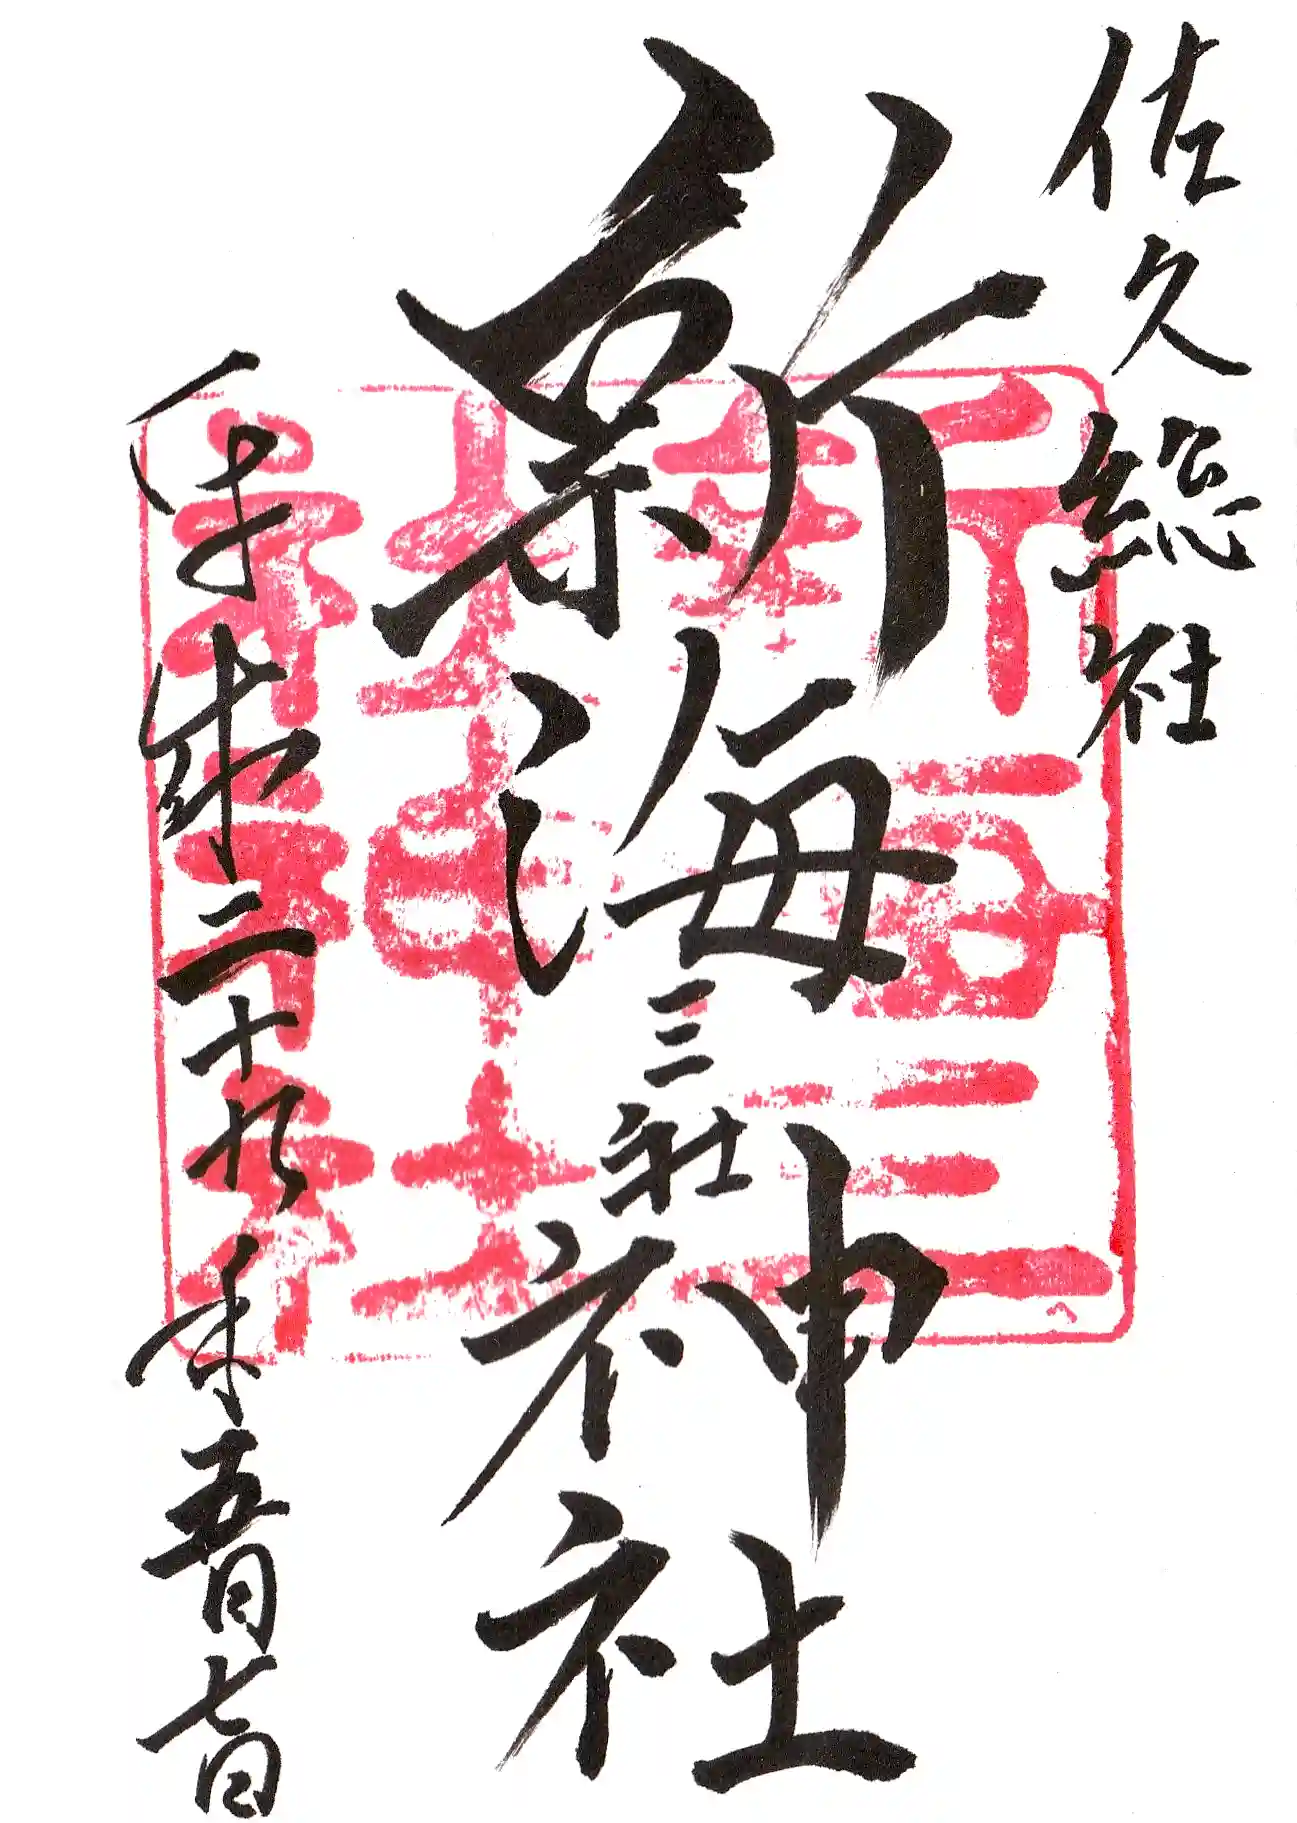 佐久総社
新海三社神社
平成二十九年五月七日
新海三
社神社